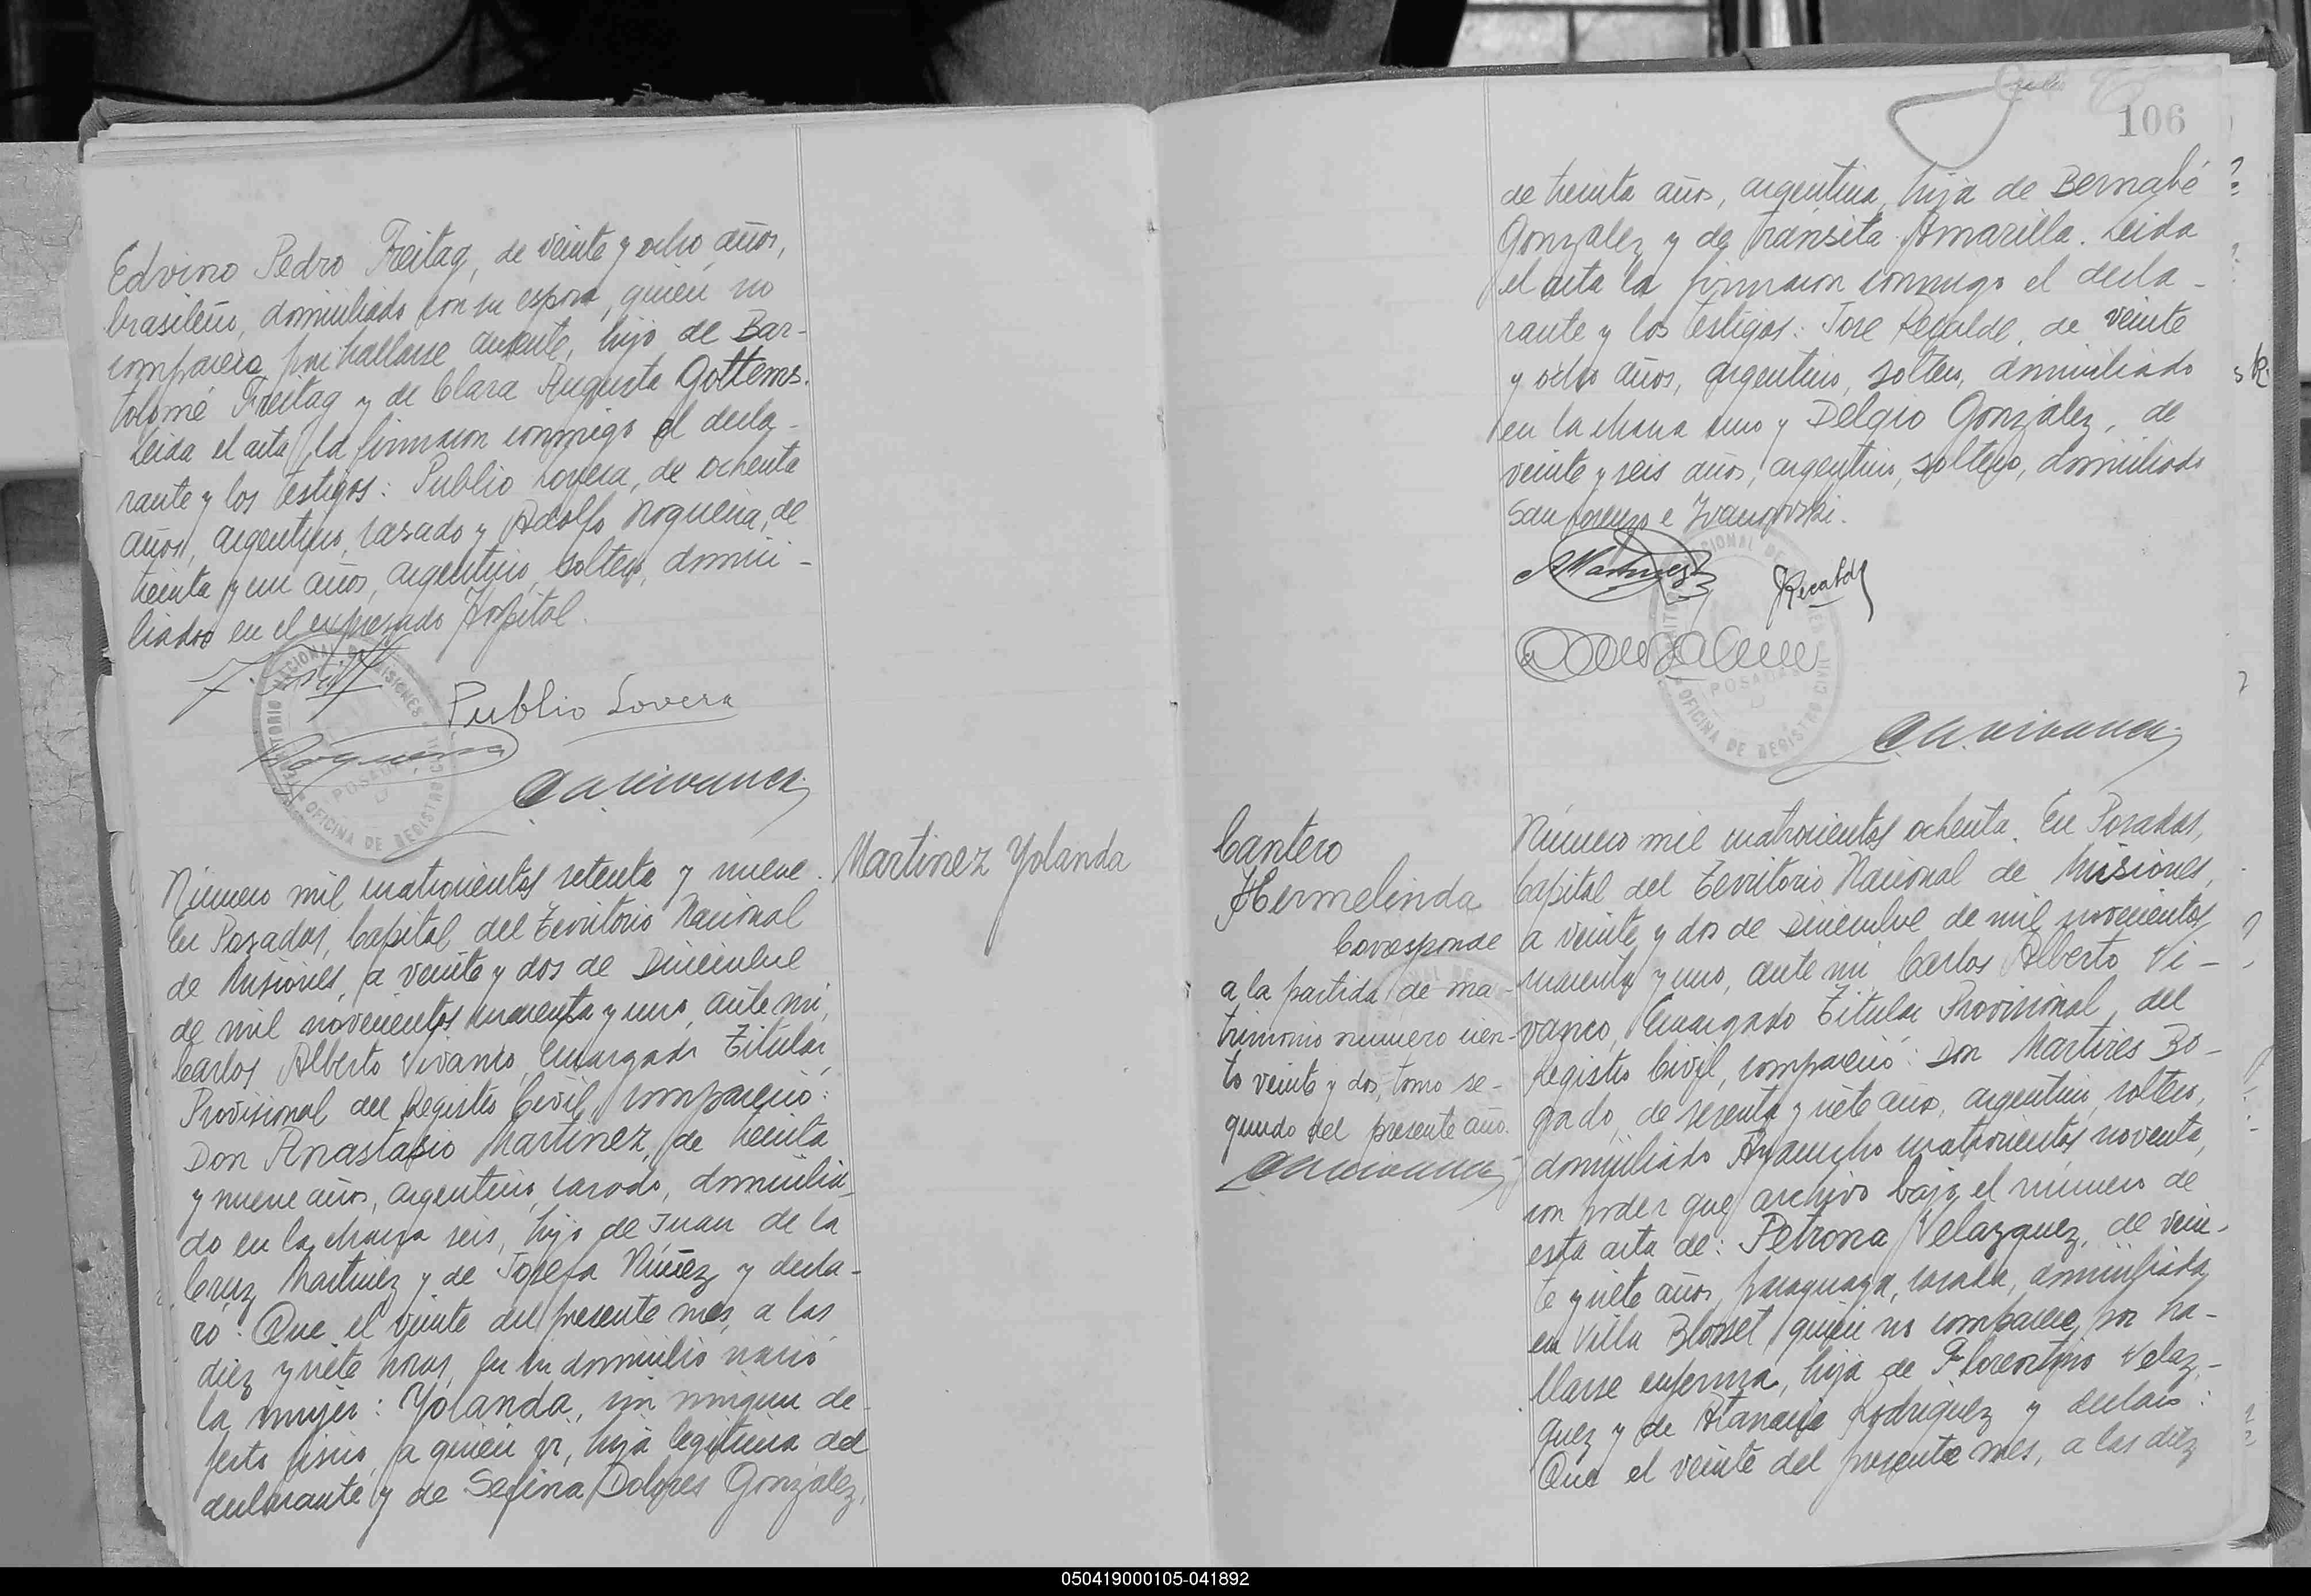 Edvino Pedro Freitag, de veinte y ocho años,
brasileño, domiciliado con su esposa, quién no
comparece por hallarse ausente, hijo de Bar-
tolomé Freitag y de Clara Augusta Gottems.
Leida el acta la firmaron conmigo el decla-
rante y los testigos: Publio Lovera, de ochenta
años, argentino, casado y Adolfo Noguera, de
treinta y un años, argentino, soltero, domici-
liados en el expresado Hospital.
Publio Lovera
Noguera
TERRITORIO NACIONAL DE MISIONES
POSADAS
OFICINA DE REGISTRO CIVIL
CAVivanco
Martinez Yolanda
Número mil cuatrocientos setenta y nueve.
En Posadas, Capital del Territorio Nacional
de Misiones, a veinte y dos de Diciembre
de mil novecientos cuarenta y uno, ante mi,
Carlos Alberto Vivanco, Encargado Titular
Provisional del Registro Civil, compareció:
Don Anastasio Martinez, de treinta
y nueve años, argentino, casado, domicilia-
do en la chacra seis, hijo de Juan de la
Cruz Martinez y de Josefa Núñez y decla-
ró: Que el veinte del presente mes, a las
diez y siete horas, en su domicilio nació
la mujer: Yolanda, sin ningun de-
fecto fisico, a quién vi, hija legitima del
declarante y de Sefina Dolores González,
106
de treinta años, argentina, hija de Bernabé
González y de Tránsita Amarilla. Leida
el acta la firmaron conmigo el decla-
rante y los testigos: José Recalde, de veinte
y ocho años, argentino, soltero, domiciliado
en la chacra uno y Delgio González, de
veinte y seis años, argentino, soltero, domiciliado
San Lorenzo e Ivanowski.
AMartinez
JRecalde
González
TERRITORIO NACIONAL DE MISIONES
POSADAS
OFICINA DE REGISTRO CIVIL
CAVivanco
Cantero
Hermelinda
Corresponde
a la partida de ma-
trimonio numero cien-
to veinte y dos, tomo se-
gundo del presente año.
CAVivanco
Número mil cuatrocientos ochenta. En Posadas,
Capital del Territorio Nacional de Misiones,
a veinte y dos de Diciembre de mil novecientos
cuarenta y uno, ante mi Carlos Alberto Vi-
vanco, Encargado Titular Provisional del
Registro Civil, compareció: Don Martires Bo-
gado, de sesenta y siete años, argentino, soltero,
domiciliado Ayacucho cuatrocientos noventa,
con poder que archivo bajo el número de
esta acta de: Petrona Velazquez, de vein-
te y siete años, paraguaya, casada, domiciliada
en Villa Blosset, quién no comparece por ha-
llarse enferma, hija de Florentino Velaz-
quez y de Atanacia Rodriguez y declaró:
Que el veinte del presente mes, a las diez
050419000105-041892